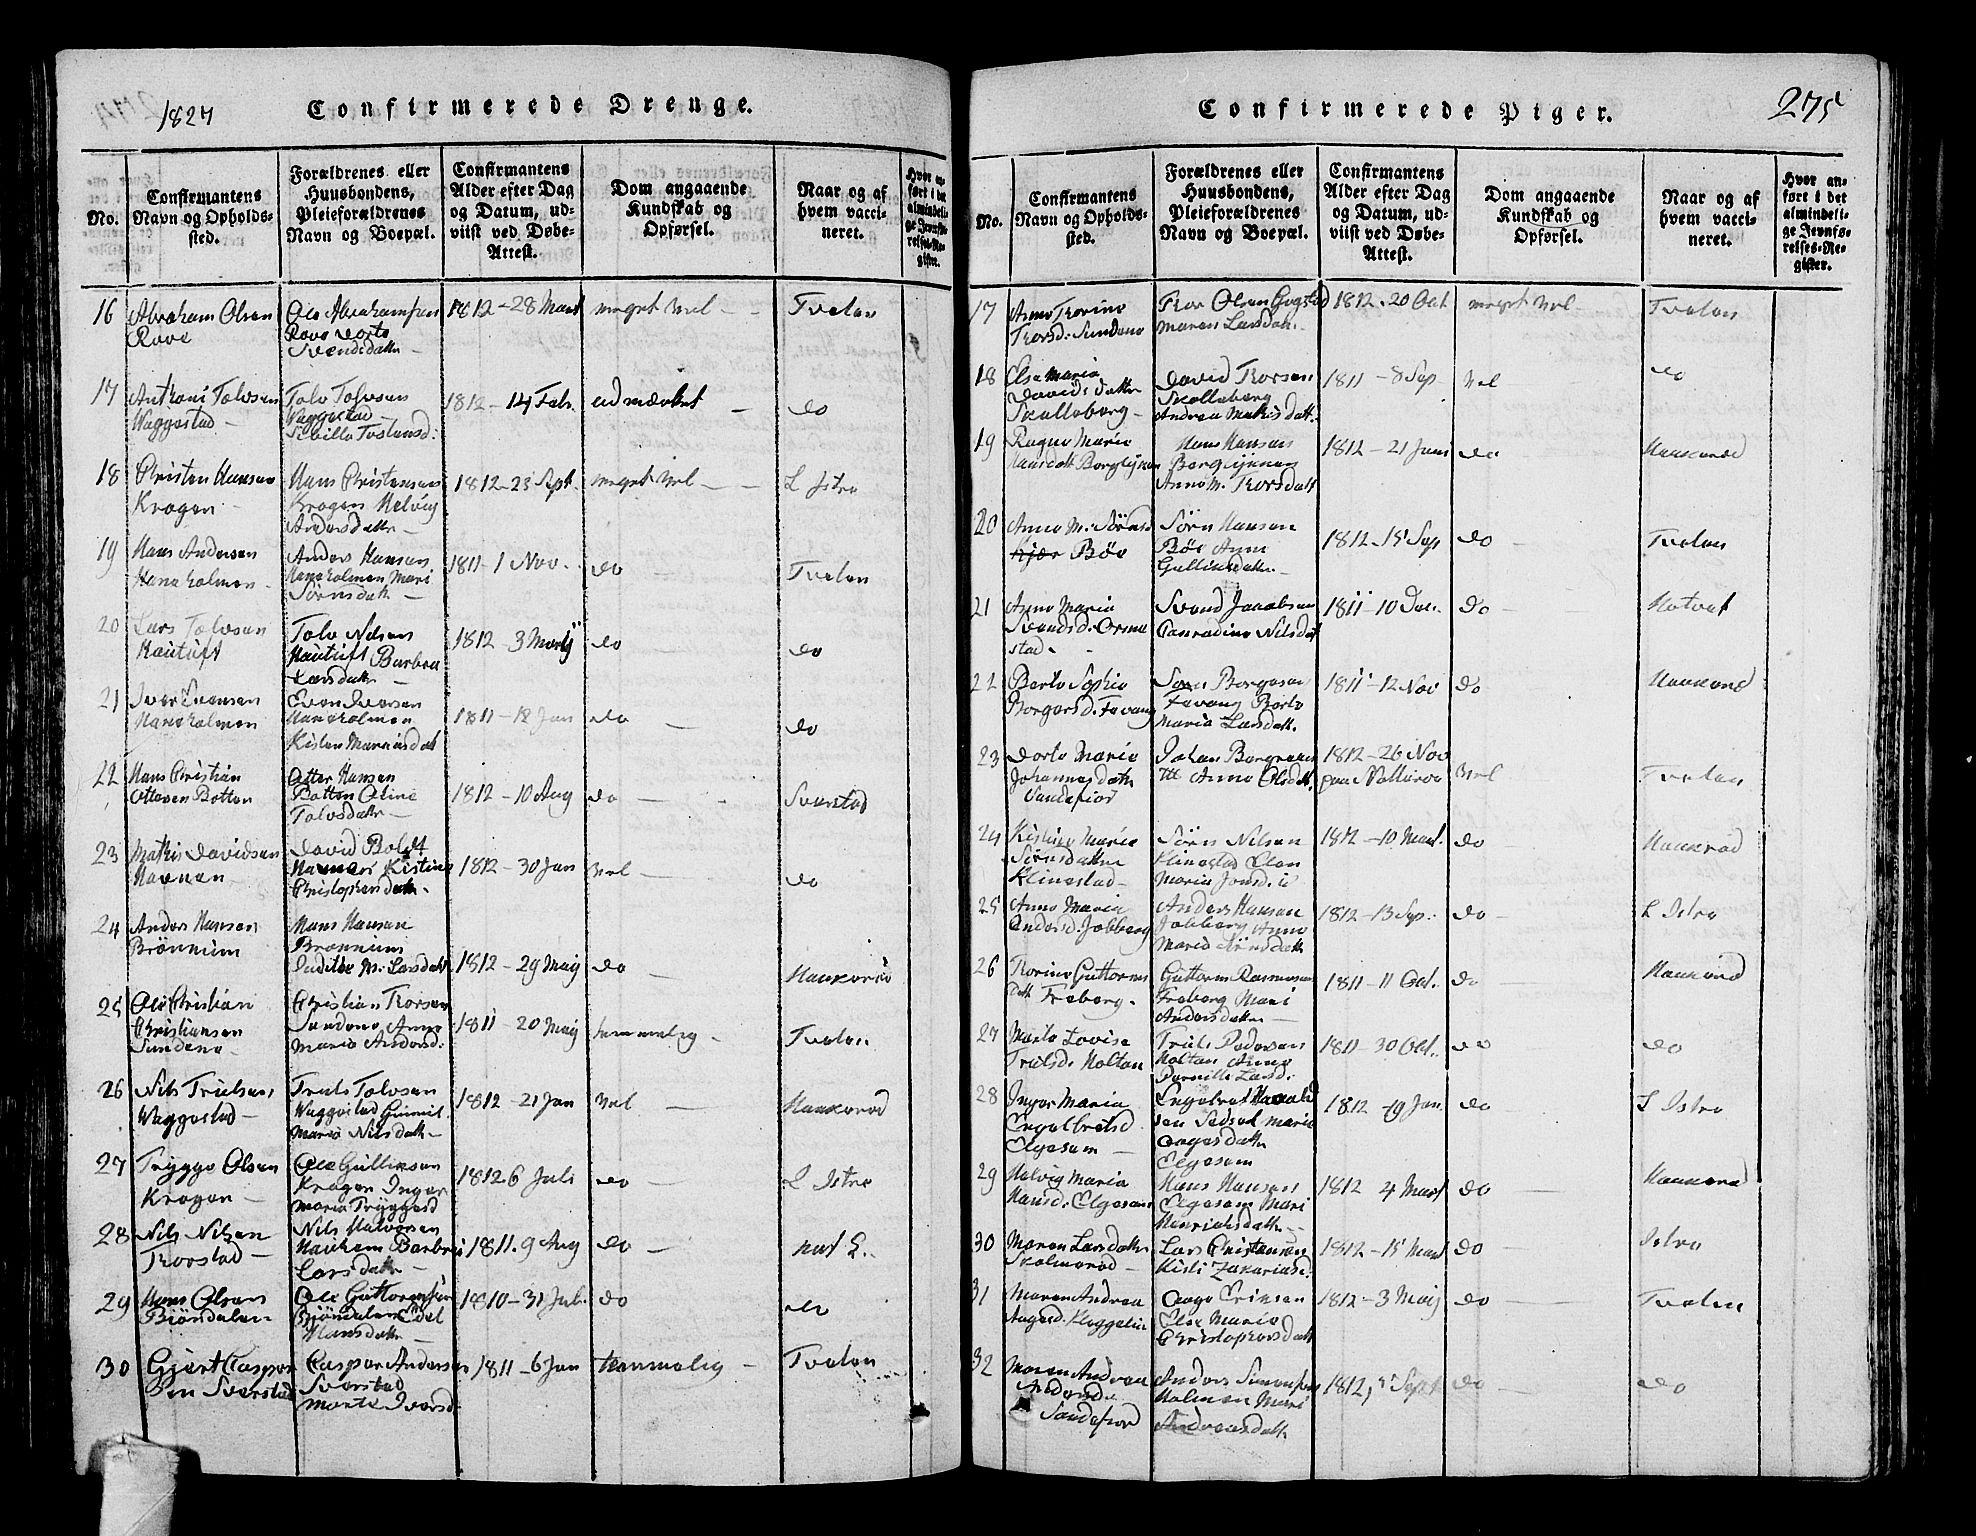 1827
Confirmerede Drenge.
No.
Confirmantens
Navn og Opholds-
sted.
Forældrenes eller
Huusbondens,
Pleieforældrenes
Navn og Boepæl.
Confirmantens
Alder efter Dag
og Datum, ud-
viist ved Døbe-
Attest.
Dom angaaende
Kundskab og
Opførsel.
Naar og af
hvem vacci-
neret.
Hvor an-
ført i det
almindeli-
ge Jevnfø-
relses-Re-
gister.
16
Abraham Olsen
Rove
Ole Abrahamsen
Rove Dorte
Svendsdattr
1812 - 28 Mart
meget vel
Tveten
17
Anthoni Tolvsen
Waggestad
Tolv Tolvsen
Waggestad
1812 - 14 Febr.
udmærket
do
18
Christen Hansen
Krogen
Hans Christensen
Krogen Helvig
Andersdattr
1812 - 23 Sept.
meget vel
L Istre
19
Hans Andersen
Anders Hansen
Mari
Sørnsdattr
1811 - 1 Nov.
do
Tveten
20
Lars Tolvsen
Hautuft
Tolv Nilsen
Hautuft Barbra
Larsdattr
1812 - 3 Martj
do
do
21
Iver Evensen
Even Iversen
1811 - 18 Jan
do
do
22
Hans Christian
Ottesen Botten
Otter Hansen
Botten Oline
Tolvsdattr
1812 - 10 Aug
do
Sverstad
23
Mathis Davidsen
David Boldt
Kistine
Christophersdattr
1812 - 30 Jan
vel
do
24
Anders Hansen
Brønnum
Hans Hansen
Brønnum
M. Larsdatt
1812 - 29 Maij
do
Haukerød
25
Ole Christian
Christiansen
Sundene
Christian Thorsen
Sundene Anne
Marie Andersd:
1811 - 20 Maij
temmelig
Tveten
26
Nils Trulsen
Waggestad
Truls Tolvsen
Waggestad
Marie Nilsdattr
1812 - 21 Jan
vel
Haukerød
27
Trygge Olsen
Krogen
Ole Gulliksen
Krogen Inger
Maria Tryggesd
1812 6 Juli
do
L Istre
28
Nils Nilsen
Thorstad
Nils Halvorsen
Barbra
Larsdattr
1811. 9 Aug
do
29
Hans Olsen
Biøndalen
Ole Guttormsen
Biøndalen Edel
Hansdattr
1810 - 31 Jul.
do
do
30
Gjert Casper
sen Sverstad
Casper Andersen
Sverstad
Marte Iversd.
1811 - 6 Jan
temmelig
Tveten
Confirmerede Piger.
275
No.
Confirmantens
Navn og Opholds-
sted.
Forældrenes eller
Huusbondens,
Pleieforældrenes
Navn og Boepæl.
Confirmantens
Alder efter Dag
og Datum, ud-
viist ved Døbe-
Attest.
Dom angaaende
Kundskab og
Opførsel.
Naar og af
hvem vacci-
neret.
Hvor an-
ført i det
almindeli-
ge Jevnfø-
relses-Re-
gister.
17
Anne Thorine
Thorsd: Sundene
Thor Olsen Gogstad
Maren Larsdatt.
1812 - 20 Oct
meget vel
Tveten
18
Else Maria
Davidsdattr
Skalleberg
David Thorsen
Skalleberg
Andrea Mathisdatt.
1811 - 8 Sep
vel
do
19
Ragne Marie
Hansdatt
Hans Hansen
Anne M. Thorsdatt
1812 - 21 Juni
do
Haukerød
20
Anne M: Sørnsd
Bøe
Sørn Hansen
Bøe Anne
Gulliksdattr
1812 - 15 Sep
do
Tveten
21
Anne Maria
Svendsd. Orme
stad
Svend Jacobsen
Conradine Nilsdat
1811 - 10 Dec.
do
22
Berte Sophie
Borgersd. Fevang
Borgersen
Fevang Berte
Maria Larsdatt.
1811 - 12 Nov
do
Haukerød
23
Dorte Marie
Johannesdattr
Sandefior
Anne Olsdatt
1812 - 26 Nov
paa Nøtterøe
vel
Tveten
24
Kistine Marie
Sørnsdattr
Klinestad
Sørn Nilsen
Klinestad Elen
Maria
1812 - 10 Mart.
do
Haukerød
25
Anne Maria
Andersd. Jobberg
Anders Hansen
Jobberg Anne
Marie Sørnsdattr
1812 - 13 Sep.
do
L Istre
26
Thorine Guttorms
datt Freberg
Guttorm Rasmussen
Freberg Mari
Andersdattr
1811 - 11 Oct.
do
Haukerød
27
Marte Lovise
Trulsd. Holtan
Truls Pedersen
Holtan Anne
Pernille Larsd.
1811 - 30 Oct.
do
do
28
Inger Maria
Engelbretsd
Elgesem
Engelbret
sen Marie
Aagesdattr
Elgesem
1812 - 19 Jan
do
L Istre
29
Helvig Maria
Hansd. Elgesem
Hans Hansen
Elgesem Mari
Henrichsdattr
1812 4 Mart
do
Haukerød
30
Maren Larsdattr
Skolmerød
Lars Christensen
Kisti Zakariasd.
1812 - 15 Mart
do
Istre
31
Maren Andrea
Aagesd.
Aage Eriksen
Else Marie
Christophersdatt
1812 - 3 Maij
do
Tveten
32
Maren Andrea
Andersd
Sandefior
Anders Simensen
Holmen Mari
Andreasdatt.
1812, Sept
do
do